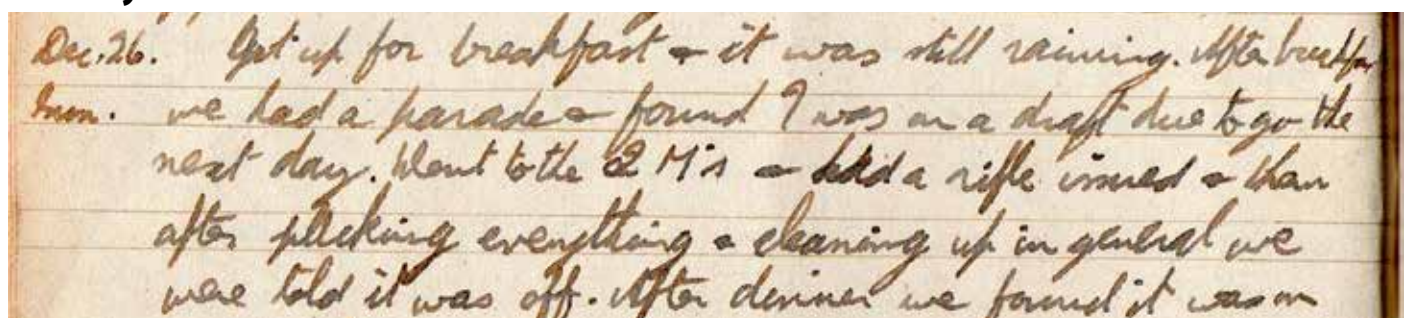 Dec. 26. Got up for breakfast & it was still raining. After breakfas
Sun. we had a parade & found I was on a draft due to go the
next day. Went to the Q M's & had a rifle issued & then
after packing everything & cleaning up in general we
were told it was off. After dinner we found it was on